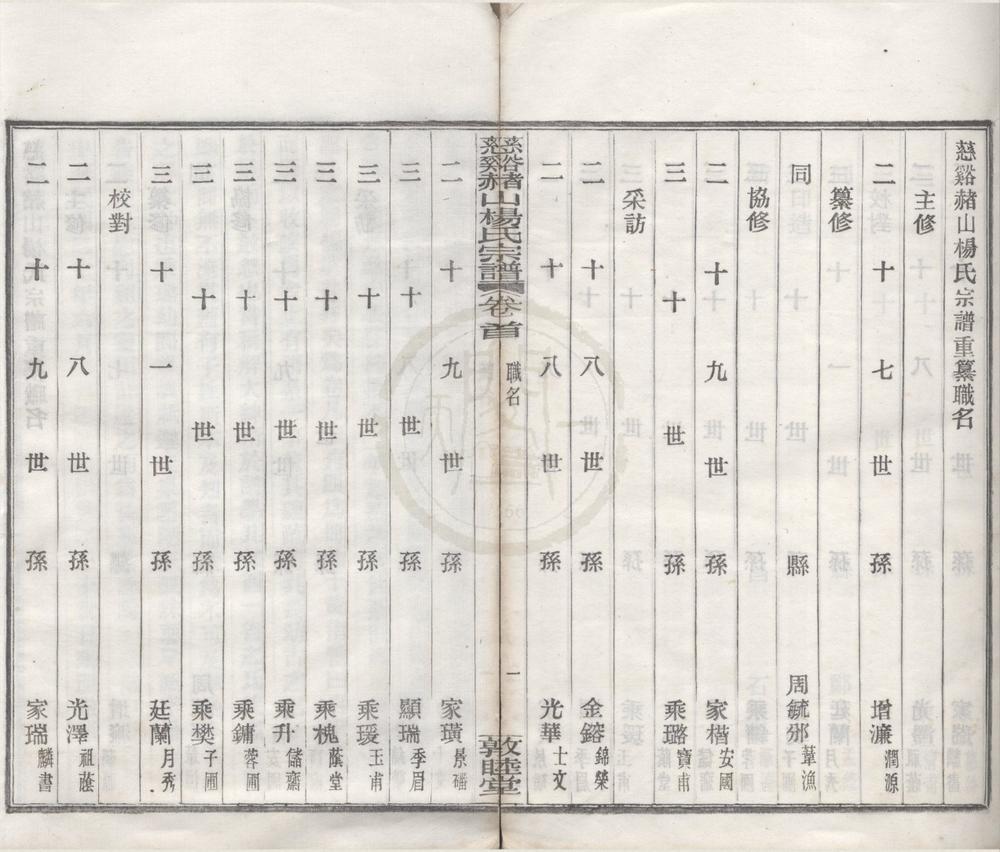 慈谿赭山楊氏宗譜重纂職名
主修
二十七世孫增濂澗源
纂修
同縣周毓邠葦漁
協修
二十九世孫家楷安國
三十世孫乘璐寶甫
采訪
二十八世孫金鎔錦榮
二十八世孫光華士文
慈谿赭山楊氏宗譜 卷首 職名 一 敦睦堂
二十九世孫家璜景磻
三十世孫顯瑞季眉
三十世孫乘瑗玉甫
三十世孫乘槐蔭堂
三十世孫乘升儲齋
三十世孫乘鏞蓉圃
三十世孫乘樊子圃
三十一世孫廷蘭月秀
校對
二十八世孫光澤祖蔭
二十九世孫家瑞麟書